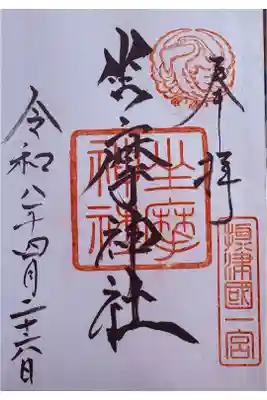 奉拝
攝津國一宮
坐摩神社
坐摩
神社
令和八年四月二十六日